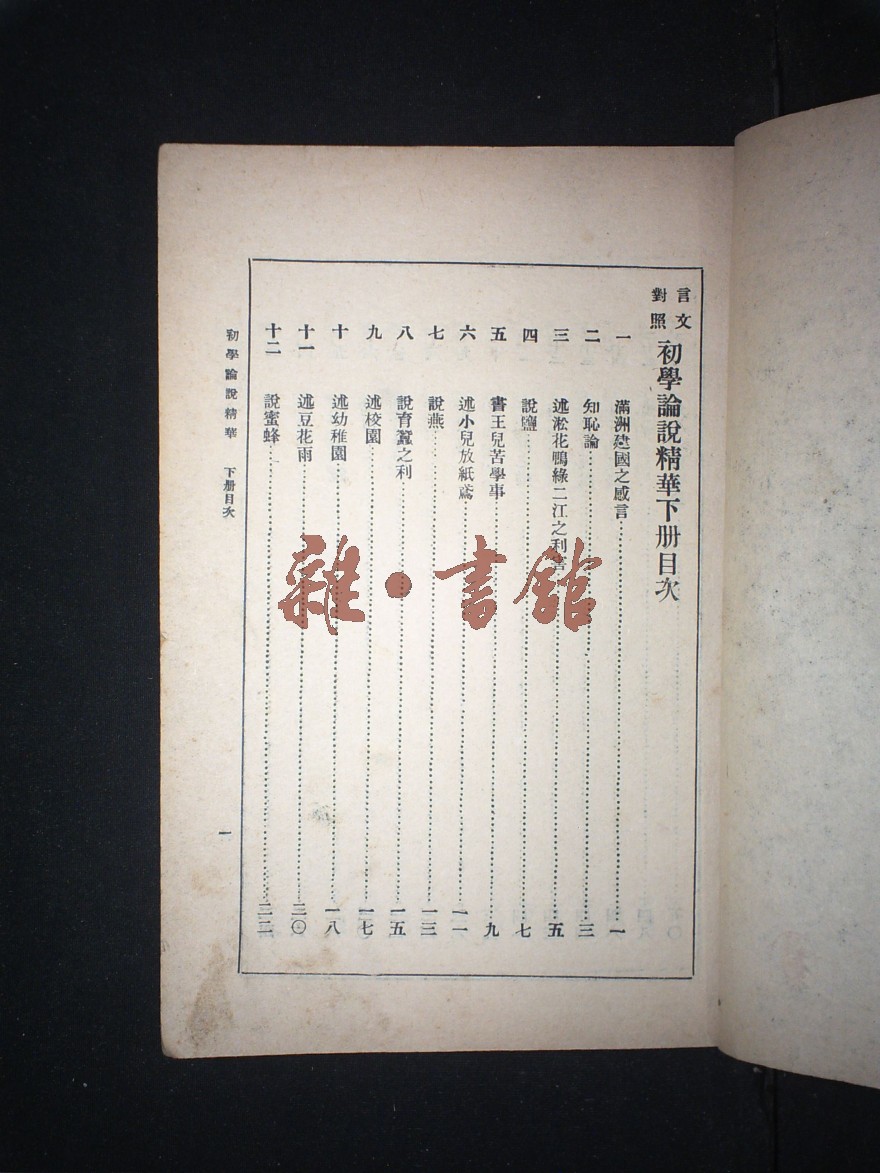 言文對照 初學論說精華下册目次
一 滿洲建國之感言……一
二 知恥論……三
三 述淞花鴨綠二江之利害……五
四 說鹽……七
五 書王兒苦學事……九
六 述小兒放紙鳶……一一
七 說燕……一三
八 說育蠶之利……一五
九 述校園……一七
十 述幼稚園……一八
十一 述豆花雨……二〇
十二 說蜜蜂……二二
初學論說精華 下册目次 一
雜·書館